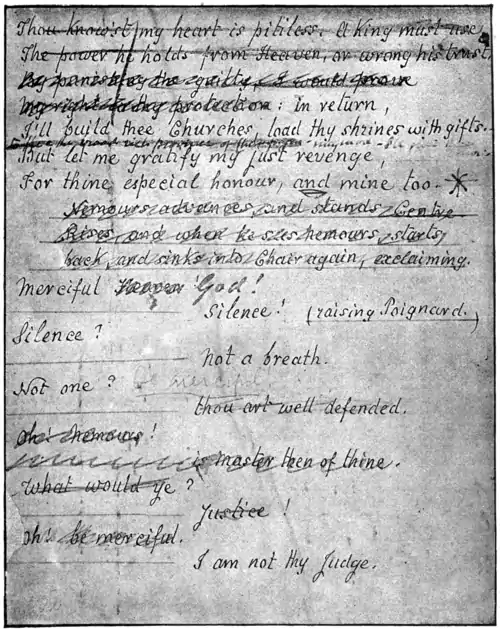 Thou know'st my heart is pitiless. A King must use
The power he holds from Heaven, or wrong his trust,
By punishing the guilty, I would prove
My right to thy protection: in return,
I'll build thee Churches, load thy shrines with gifts.
But let me gratify my just revenge,
For thine especial honour, and mine too. *
Nemours advances, and stands Centre
Rises, and when he sees Nemours, starts
back, and sinks into Chair again, exclaiming.
Merciful God!
Silence! (raising Poignard.)
Silence?
Not a breath.
Not one? be merciful
thou art well defended.
Oh! Nemours!
is master then of thine.
What would ye?
Justice!
Oh! be merciful.
I am not thy Judge.